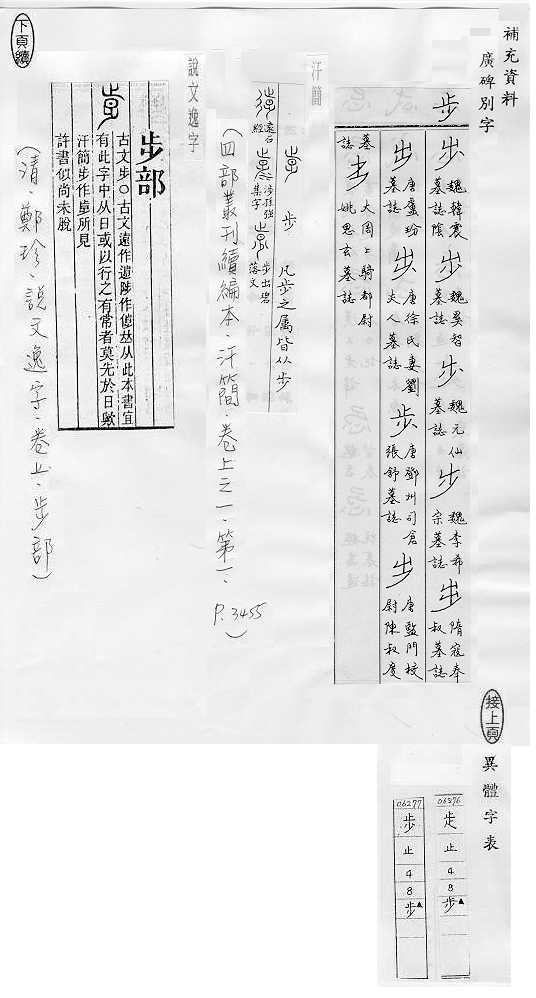 補充資料
廣碑別字
步
魏韓震墓誌陰
魏奚智墓誌
魏元仙墓誌
魏李希宗墓誌
隋寇奉叔墓誌
唐盧玢墓誌
唐徐氏妻劉夫人墓誌
唐鄧州司倉張舒墓誌
唐監門校尉陳叔度墓誌
大周上騎都尉姚思玄墓誌
汗簡
步
凡步之属皆从步
(四部叢刊續編本·汗簡·卷上之一·第一、P.3455)
說文逸字
步部
古文步○古文遠作𨖸陟作𢓊𠀤从此本書宜
有此字中从日或以行之有常者莫先於日歟
汗簡步作𣥠所見
許書似尚未脫
(清·鄭珍·說文逸字·卷上·步部)
下頁續
接上頁
異體字表
06276
止
4
8
步▲
06277
步
止
4
8
步▲